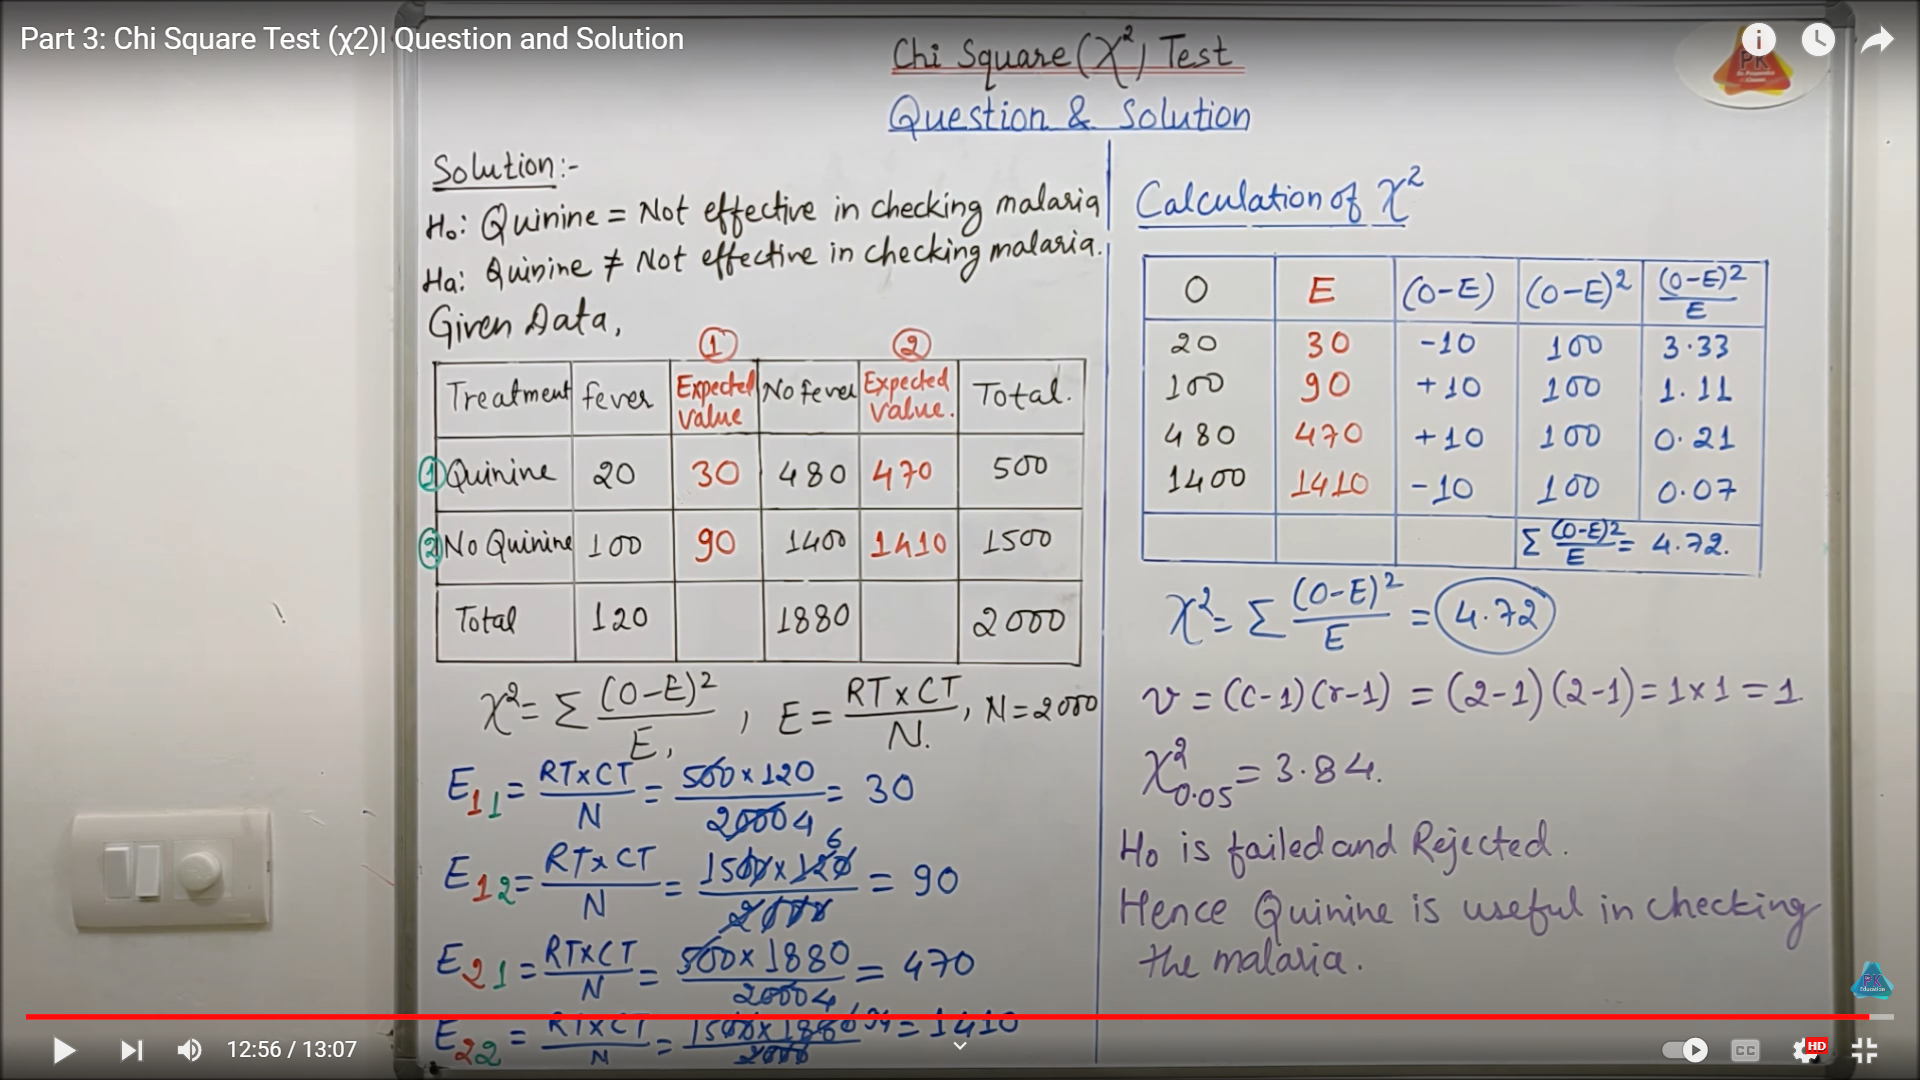 Part 3: Chi Square Test (χ2)| Question and Solution
Chi Square (χ²) Test
Question & Solution
PK
Solution:-
H₀: Quinine = Not effective in checking malaria
Ha: Quinine ≠ Not effective in checking malaria.
Given Data,
① ②
Treatment fever Expected value No fever Expected value. Total.
① Quinine 20 30 480 470 500
② No Quinine 100 90 1400 1410 1500
Total 120 1880 2000
χ² = Σ (O-E)²/E, , E = RT×CT/N. , N=2000
E₁₁ = RT×CT/N = 500×120/2000 4 = 30
E₁₂ = RT×CT/N = 1500×120 6/2000 = 90
E₂₁ = RT×CT/N = 500×1880/2000 4 = 470
E₂₂ = RT×CT/N = 1500×1880/2000 = 1410
Calculation of χ²
O E (O-E) (O-E)² (O-E)²/E
20 30 -10 100 3.33
100 90 +10 100 1.11
480 470 +10 100 0.21
1400 1410 -10 100 0.07
Σ (O-E)²/E = 4.72.
χ² = Σ (O-E)²/E = 4.72
v = (c-1)(r-1) = (2-1)(2-1) = 1×1 = 1.
χ²0.05 = 3.84.
H₀ is failed and Rejected.
Hence Quinine is useful in checking
the malaria.
PK
Education
12:56 / 13:07
CC
HD